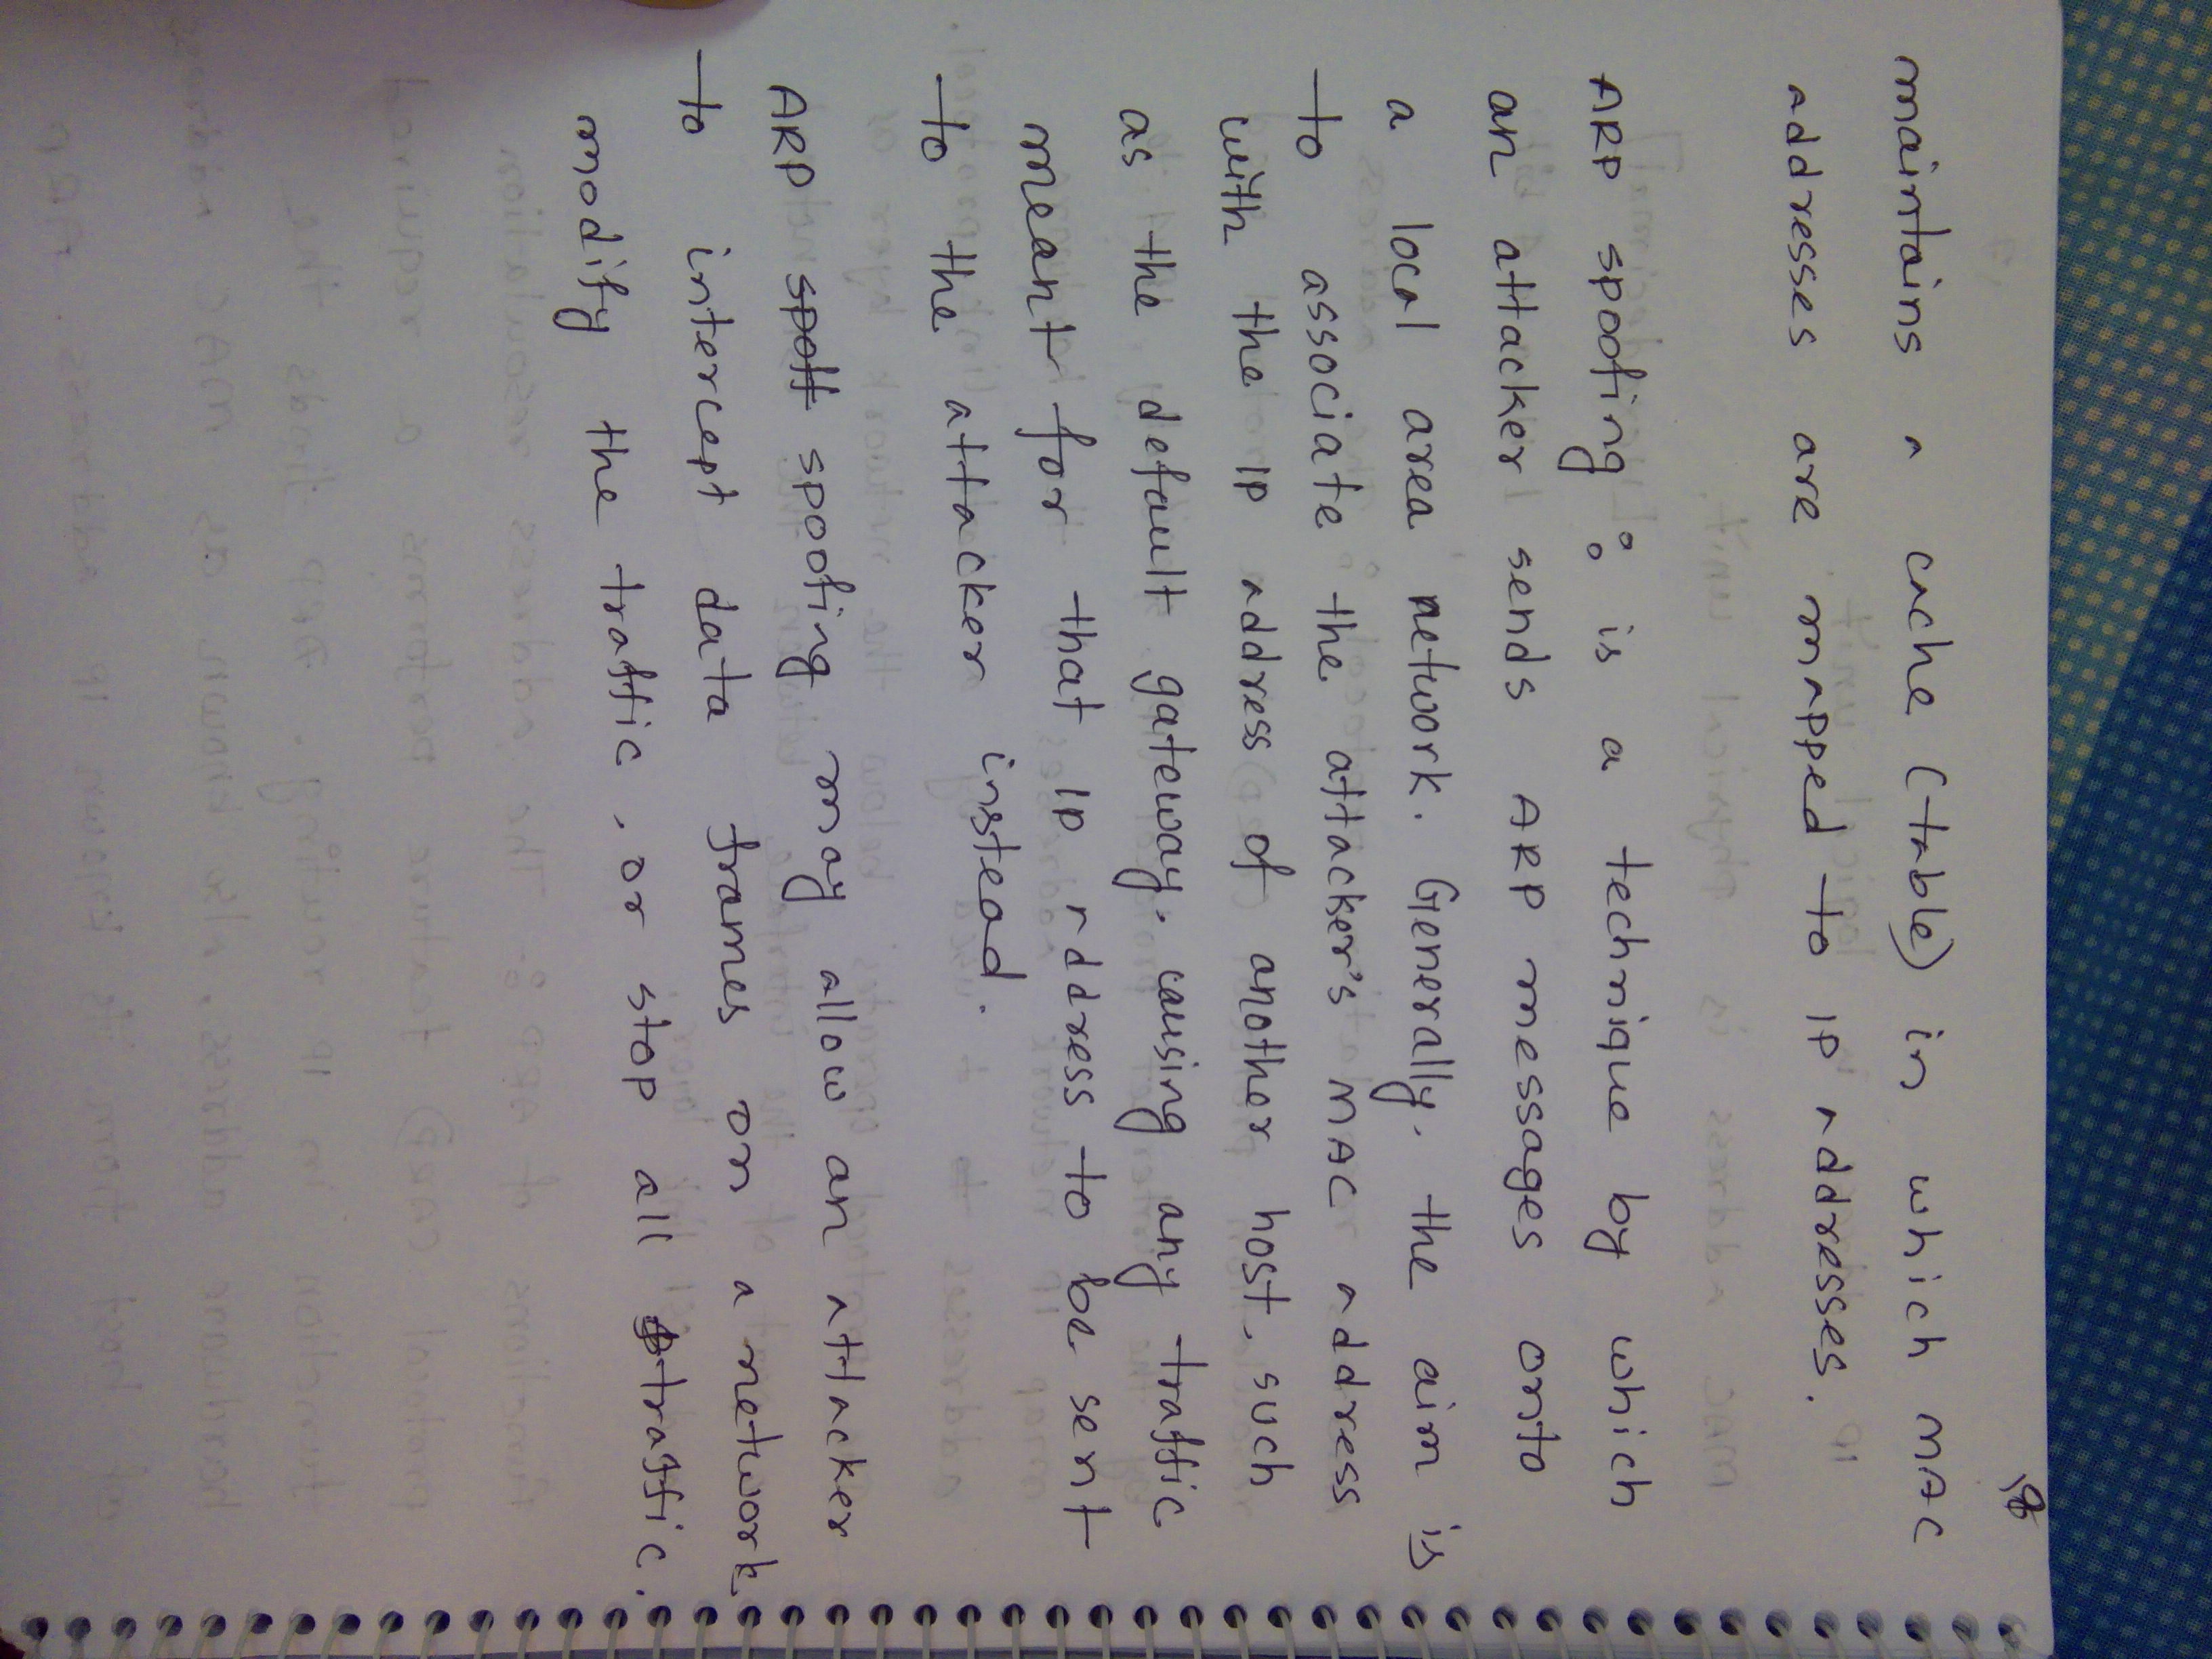 18
maintains a cache (table) in which MAC
addresses are mapped to IP addresses.
ARP spoofing : is a technique by which
an attacker sends ARP messages onto
a local area network. Generally, the aim is
to associate the attacker's MAC address
with the IP address of another host, such
as the default gateway, causing any traffic
meant for that IP address to be sent
to the attacker instead.
ARP spoff spoofing may allow an attacker
to intercept data frames on a network
modify the traffic, or stop all traffic.